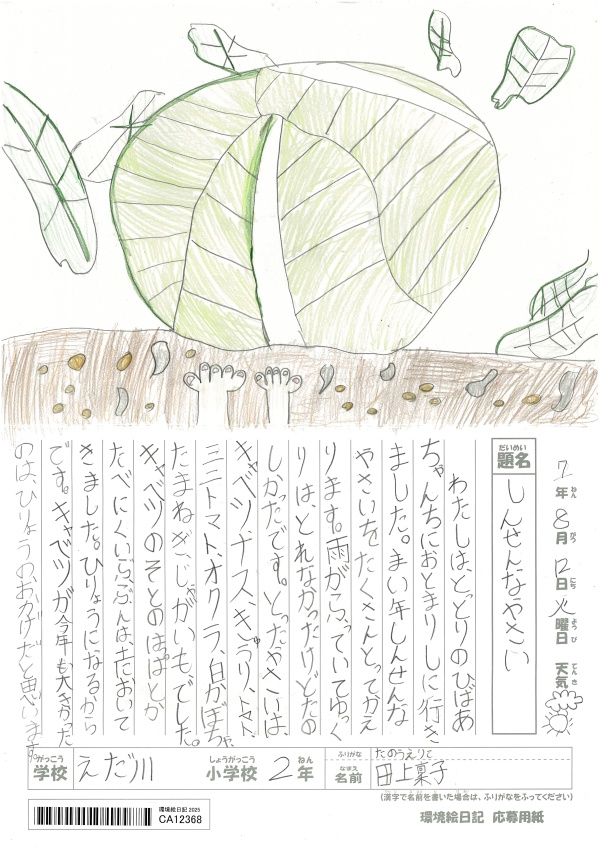 7年 8月 12日 火曜日 天気
ねん がつ にち ようび てんき
だいめい
題名 しんせんなやさい
わたしは、とっとりのひばあ
ちゃんちにおとまりしに行き
ました。まい年しんせんな
やさいをたくさんとってかえ
ります。雨がふっていてゆっく
りは、とれなかったけどたの
しかったです。とったやさいは、
キャベツ、ナス、きゅうり、トマト、
ミニトマト、オクラ、白かぼちゃ、
たまねぎ、じゃがいも、でした。
キャベツのそとのはぱとか
たべにくいぶぶんは、おいて
きました。ひりょうになるから
です。キャベツが今年も大きかった
のは、ひりょうのおかげだと思います。
がっこう しょうがっこう ねん
学校 えだ川 小学校 2年
ふりがな たのうええりこ
なまえ
名前 田上菓子
(漢字で名前を書いた場合は、ふりがなをふってください)
環境絵日記 2025
CA12368
環境絵日記 応募用紙